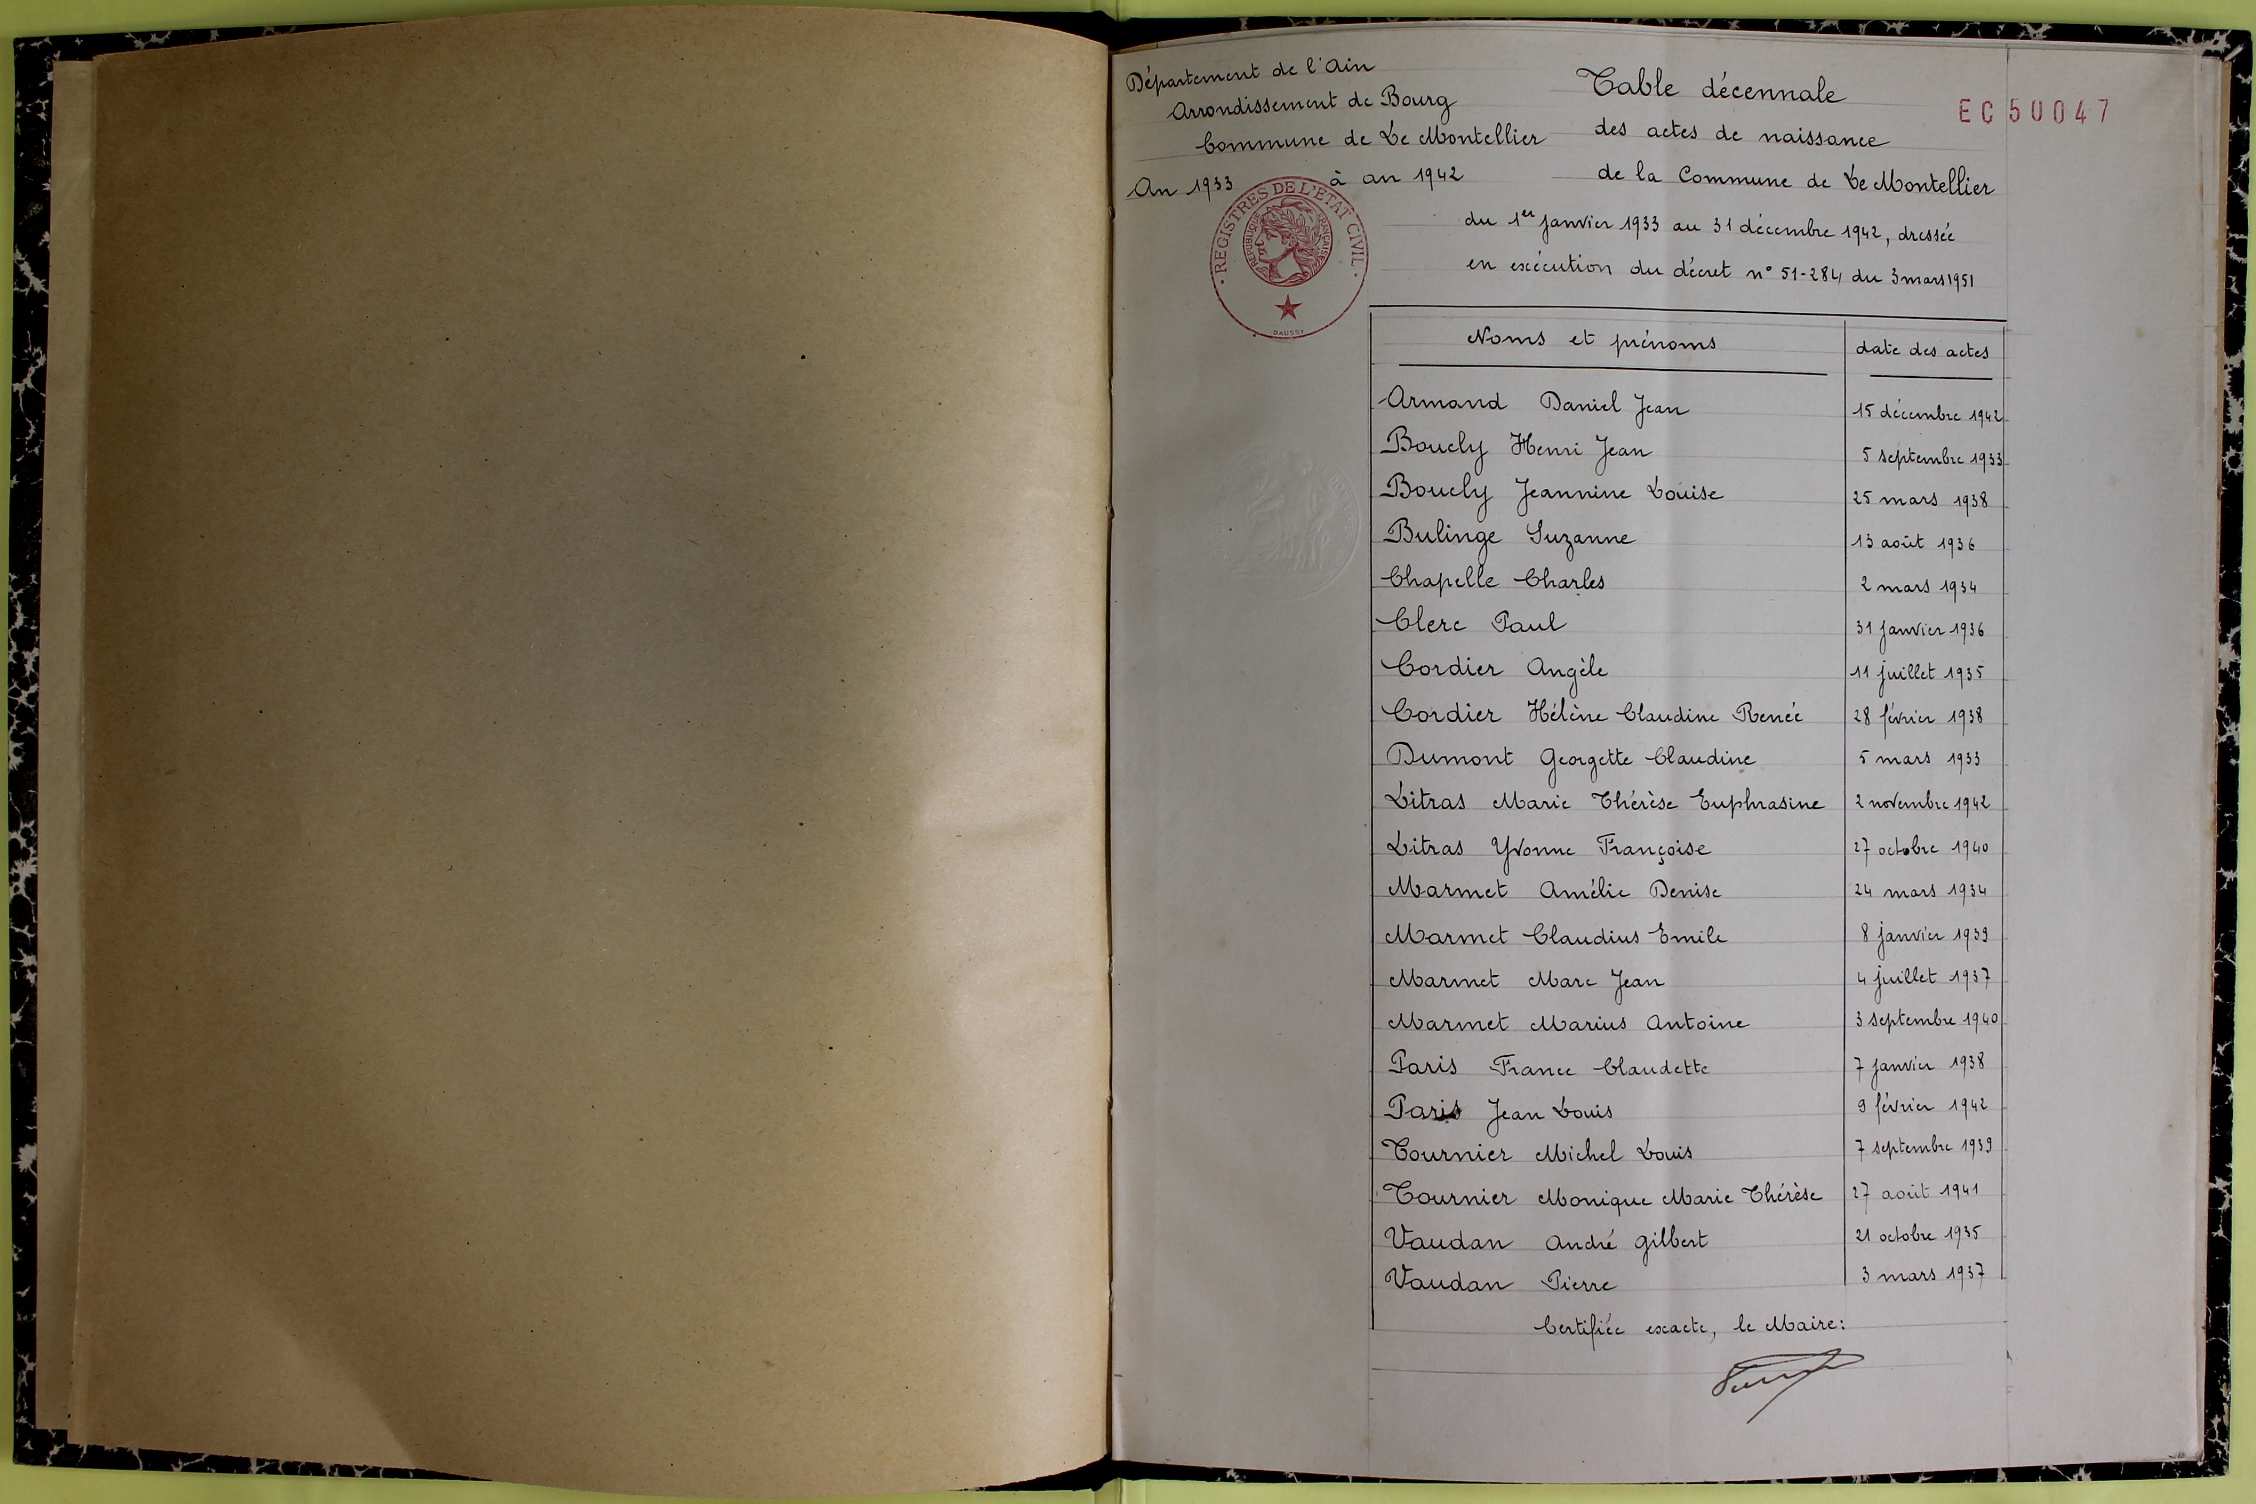 Département de l'Ain
Arrondissement de Bourg
Commune de Le Montellier
An 1933 à an 1942
REGISTRES DE L'ETAT CIVIL
REPUBLIQUE FRANÇAISE
DAUSSY
Table décennale
EC 50047
des actes de naissance
de la Commune de Le Montellier
du 1er janvier 1933 au 31 décembre 1942, dressée
en exécution du décret n° 51-284 du 3 mars 1951
Noms et prénoms date des actes
Armand Daniel Jean 15 décembre 1942
Boucly Henri Jean 5 septembre 1933
Boucly Jeannine Louise 25 mars 1938
Bulinge Suzanne 13 août 1936
Chapelle Charles 2 mars 1934
Clerc Paul 31 janvier 1936
Cordier Angèle 11 juillet 1935
Cordier Hélène Claudine Renée 28 février 1938
Dumont Georgette Claudine 5 mars 1933
Litras Marie Thérèse Euphrasine 2 novembre 1942
Litras Yvonne Françoise 27 octobre 1940
Marmet Amélie Denise 24 mars 1934
Marmet Claudius Emile 8 janvier 1939
Marmet Marc Jean 4 juillet 1937
Marmet Marius Antoine 3 septembre 1940
Paris France Claudette 7 janvier 1938
Paris Jean Louis 9 février 1942
Tournier Michel Louis 7 septembre 1939
Tournier Monique Marie Thérèse 27 août 1941
Vaudan André Gilbert 21 octobre 1935
Vaudan Pierre 3 mars 1937
Certifiée exacte, le Maire: